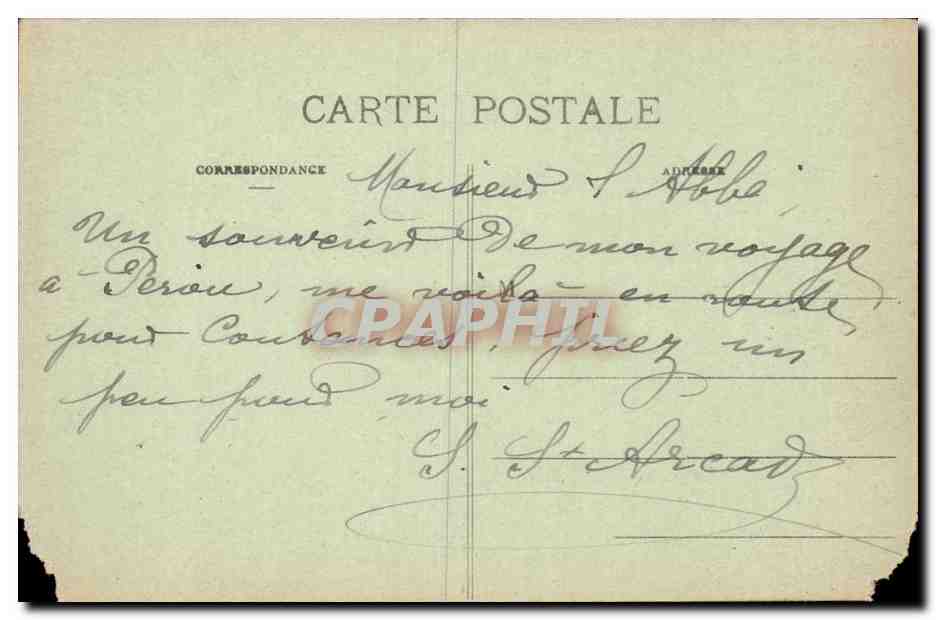 CARTE POSTALE
CORRESPONDANCE
ADRESSE
Monsieur l'Abbé,
Un souvenir de mon voyage
à Periou, me voilà en route
pour Coutances, priez un
peu pour moi
S. St Arcad
CPAPHIL